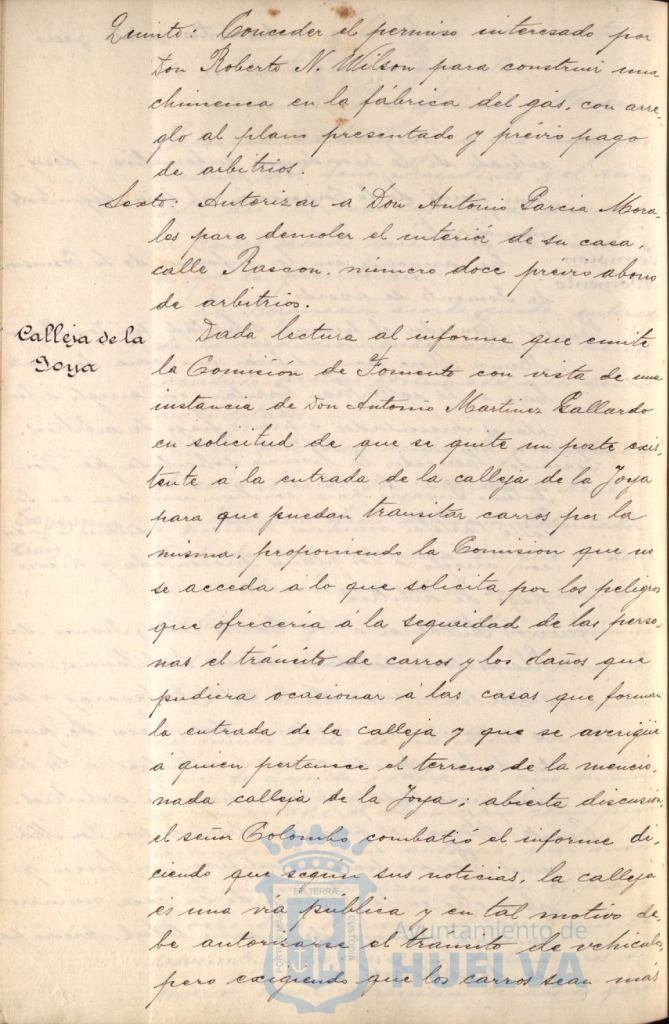 Quinto: Conceder el permiso interesado por
Don Roberto N. Wilson para construir una
chimenea en la fábrica del gas, con arre-
glo al plano presentado y prévio pago
de arbitrios.
Sexto: Autorizar á Don Antonio Garcia Mora-
les para demoler el interior de su casa,
calle Rascon, número doce prévio abono
de arbitrios.
Calleja de la
Joya
Dada lectura al informe que emite
la Comisión de Fomento con vista de una
instancia de Don Antonio Martinez Gallardo
en solicitud de que se quite un poste exis-
tente á la entrada de la calleja de la Joya
para que puedan transitar carros por la
misma, proponiendo la Comision que no
se acceda á lo que solicita por los peligros
que ofreceria á la seguridad de las perso-
nas el tránsito de carros y los daños que
pudiera ocasionar á las casas que forman
la entrada de la calleja y que se averigüe
á quien pertenece el terreno de la mencio-
nada calleja de la Joya; abierta discusión,
el señor Colombo combatió el informe di-
ciendo que segun sus noticias, la calleja
es una via pública y en tal motivo de-
be autorizarse el transito de vehiculos,
pero exigiendo que los carros sean más
Ayuntamiento de
HUELVA